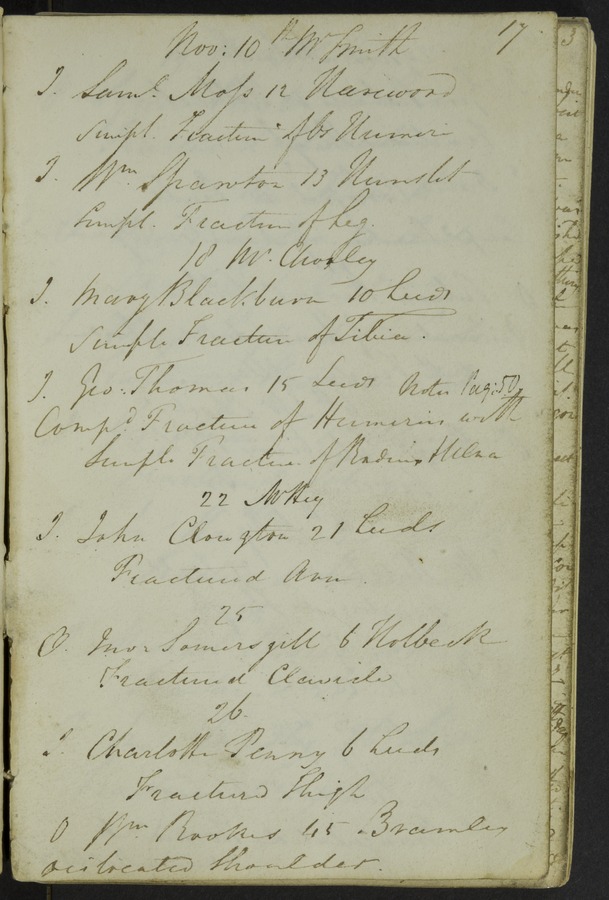 17
Nov: 10th Mr Smith
I. Saml. Moss 12 Harewood
Simpl. Fracture of Os Humeri
I. Wm Spawton 13 Hunslet
Simpl. Fracture of Leg.
18 Mr. Chorley
I. Mary Blackburn 10 Leeds
Simple Fracture of Tibia.
I. Geo: Thomas 15 Leeds Notes Pag: 50
Compd Fracture of Humerus with
Simple Fracture of Radius & Ulna
22 Mr Hey
I. John Clougton 21 Leeds
Fractured Arm.
25
O. Jno. Somersgill 6 Holbeck
Fractured Clavicle
26
I. Charlotte Penny 6 Leeds
Fractured Thigh
O Wm Rookes 45 Bramley
dislocated Shoulder.
3